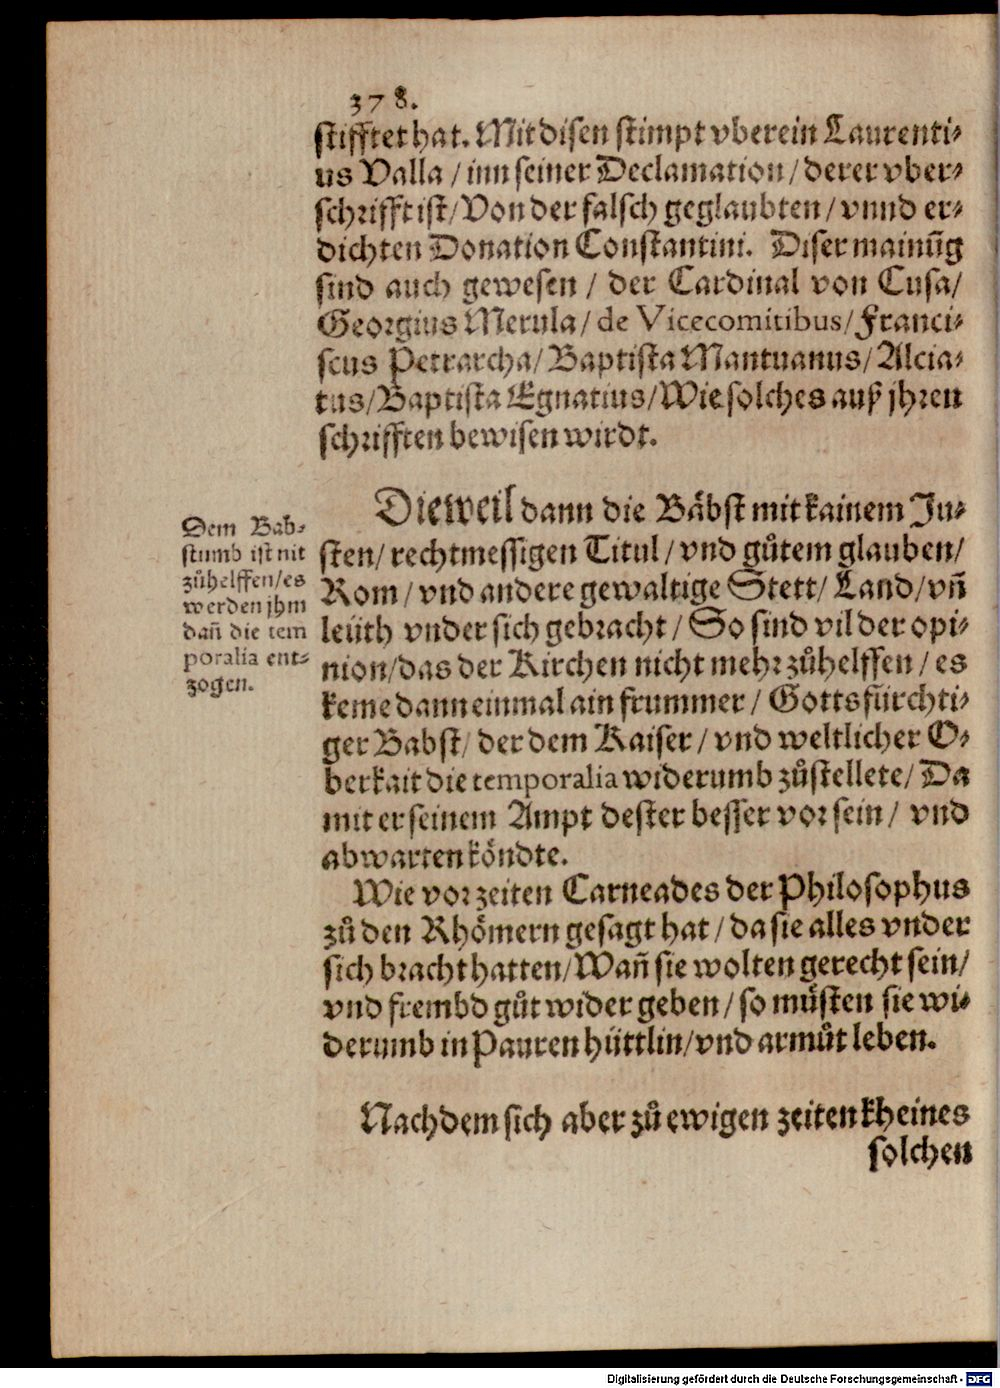 378.
stifftet hat. Mit disen stimpt vberein Laurenti-
us Valla / inn seiner Declamation / derer vber-
schrifft ist / Von der falsch geglaubten / vnnd er-
dichten Donation Constantini. Diser mainũg
sind auch gewesen / der Cardinal von Cusa /
Georgius Merula / de Vicecomitibus / Franci-
scus Petrarcha / Baptista Mantuanus / Alcia-
tus / Baptista Egnatius / Wie solches auß jhren
schrifften bewisen wirdt.
Dieweil dann die Bäbst mit kainem Ju-
sten / rechtmessigen Titul / vnd gůtem glauben /
Rom / vnd andere gewaltige Stett / Land / vñ
leüth vnder sich gebracht / So sind vil der opi-
nion / das der Kirchen nicht mehr zůhelffen / es
keme dann einmal ain frummer / Gottsfürchti-
ger Babst / der dem Kaiser / vnd weltlicher O-
berkait die temporalia widerumb zůstellete / Da
mit er seinem Ampt dester besser vor sein / vnd
abwarten köndte.
Dem Bab-
stumb ist nit
zůhelffen / es
werden jhm
dañ die tem
poralia ent-
zogen.
Wie vor zeiten Carneades der Philosophus
zů den Rhömern gesagt hat / da sie alles vnder
sich bracht hatten / Wañ sie wolten gerecht sein /
vnd frembd gůt wider geben / so müsten sie wi-
derumb in Pauren hüttlin / vnd armůt leben.
Nachdem sich aber zů ewigen zeiten kheines
solchen
Digitalisierung gefördert durch die Deutsche Forschungsgemeinschaft - DFG